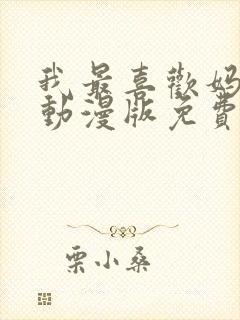 我最喜歡媽
動漫版免費
栗小桑